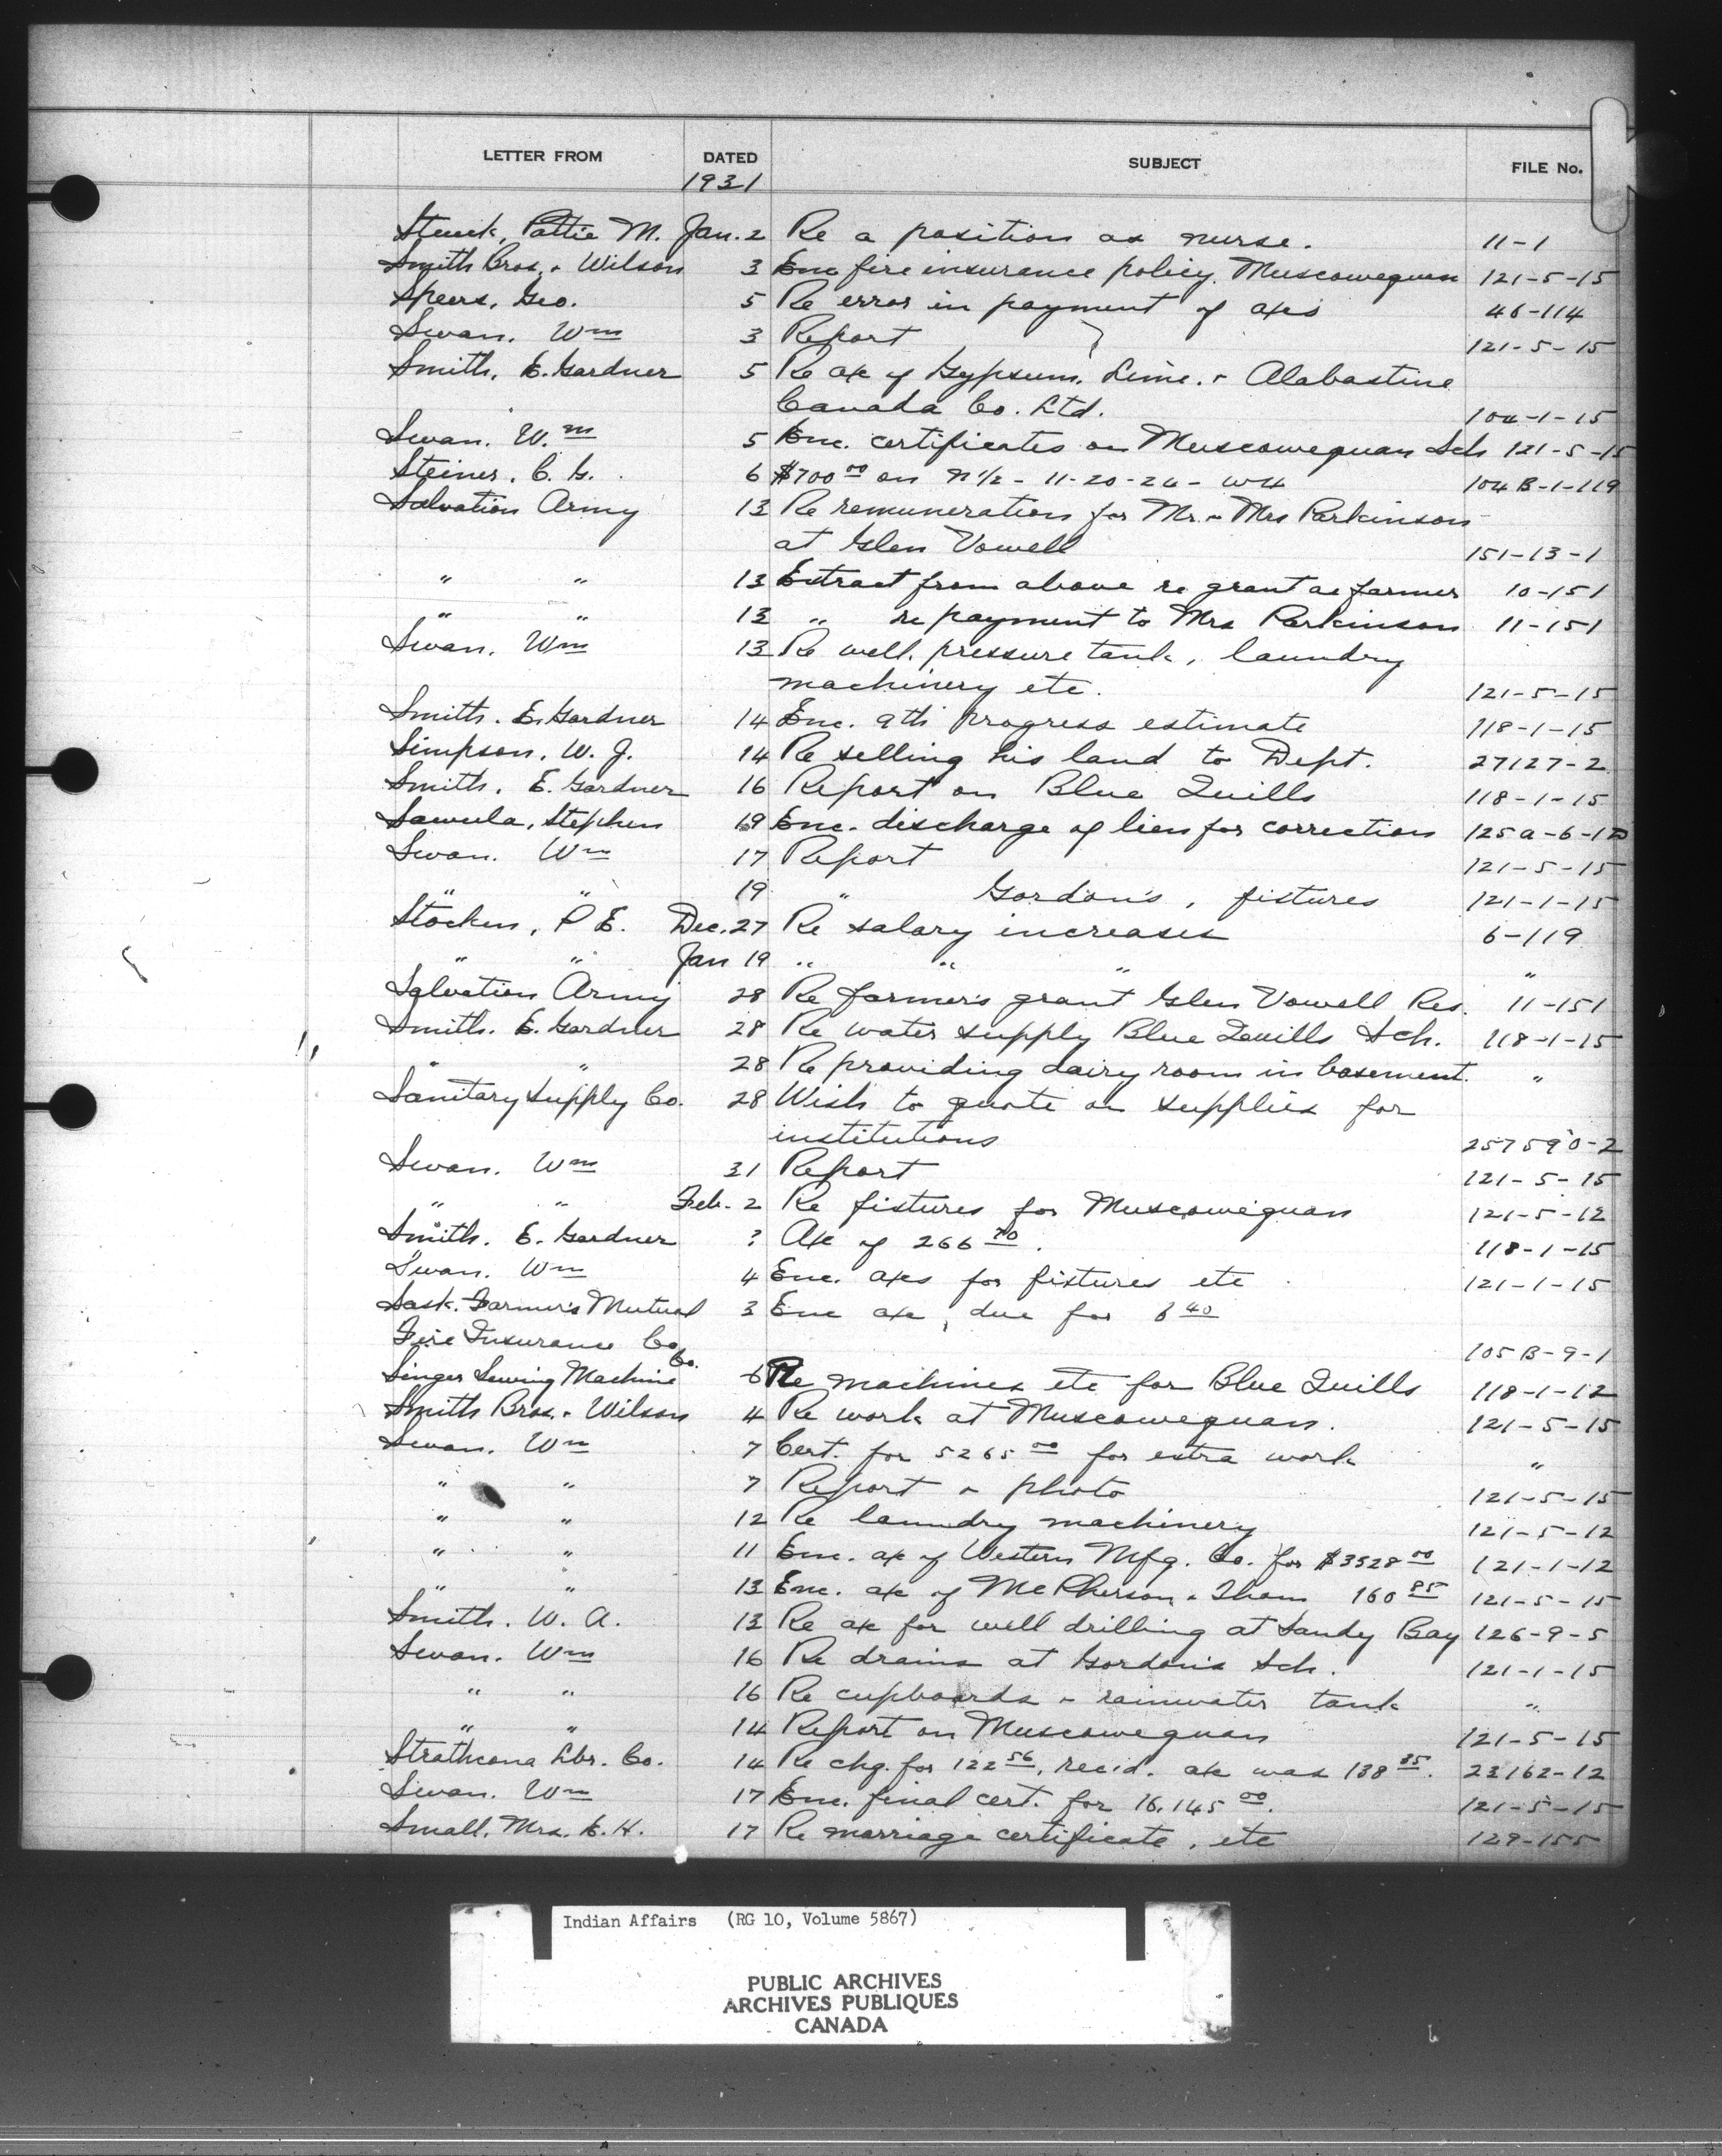 LETTER FROM DATED SUBJECT FILE No.
1931
Pattie M. Jan. 2 Re a position as nurse. 11-1
Smith Bros. & Wilson 3 Enc fire insurance policy. Muscowequan 121-5-15
Speers, Geo. 5 Re error in payment of a/cs 46-114
Swan. Wm 3 Report 121-5-15
Smith, E. Gardner 5 Re a/c of Gypsum. Lime. & Alabastine
Canada Co. Ltd. 104-1-15
Swan. Wm 5 Enc. certificates on Muscowequan Sch 121-5-15
Steiner. C. G. 6 $700 00 on N 1/2 - 11-20-24 - W4 104 B-1-119
Salvation Army 13 Re remuneration for Mr. & Mrs Parkinson
at Glen Vowell 151-13-1
" " 13 Extract from above re grant as farmer 10-151
" " 13 " re payment to Mrs Parkinson 11-151
Swan. Wm 13 Re well, pressure tank, laundry
machinery etc. 121-5-15
Smith. E. Gardner 14 Enc. 9th progress estimate 118-1-15
Simpson, W. J. 14 Re selling his land to Dept. 27127-2
Smith, E. Gardner 16 Report on Blue Quills 118-1-15
Sawula, Stephen 19 Enc. discharge of lien for correction 125 a-6-12
Swan. Wm 17 Report 121-5-15
" " 19 " Gordon's, fixtures 121-1-15
Stocken, P E. Dec. 27 Re salary increases 6-119
" " Jan 19 " " " "
Salvation Army 28 Re farmer's grant Glen Vowell Res. 11-151
Smith. E. Gardner 28 Re water supply Blue Quills Sch. 118-1-15
" " 28 Re providing dairy room in basement. "
Sanitary Supply Co. 28 Wish to quote on supplies for
institutions 257590-2
Swan. Wm 31 Report 121-5-15
" " Feb. 2 Re fixtures for Muscowequan 121-5-12
Smith. E. Gardner ? A/c of 266 70. 118-1-15
Swan. Wm 4 Enc. a/cs for fixtures etc 121-1-15
Sask. Farmer's Mutual 3 Enc a/c, due for 8 40
Fire Insurance Co. 105 B-9-1
Singer Sewing Machine Co. 6 Re machines etc for Blue Quills 118-1-12
Smith Bros. & Wilson 4 Re work at Muscowequan. 121-5-15
Swan. Wm 7 Cert. for 5265 00 for extra work "
" " 7 Report & photo 121-5-15
" " 12 Re laundry machinery 121-5-12
" " 11 Enc. a/c of Western Mfg. Co. for $3528 00 121-1-12
" " 13 Enc. a/c of McPherson & Thom 160 85 121-5-15
Smith. W. A. 13 Re a/c for well drilling at Sandy Bay 126-9-5
Swan. Wm 16 Re drains at Gordon's Sch. 121-1-15
" " 16 Re cupboards & rainwater tank "
" " 14 Report on Muscowequan 121-5-15
Strathcona Lbr. Co. 14 Re chg. for 122 56, rec'd. a/c was 138 85. 23162-12
Swan. Wm 17 Enc. final cert. for 16,145 00. 121-5-15
Small, Mrs. E. H. 17 Re marriage certificate, etc 129-155
Indian Affairs (RG 10, Volume 5867)
PUBLIC ARCHIVES
ARCHIVES PUBLIQUES
CANADA